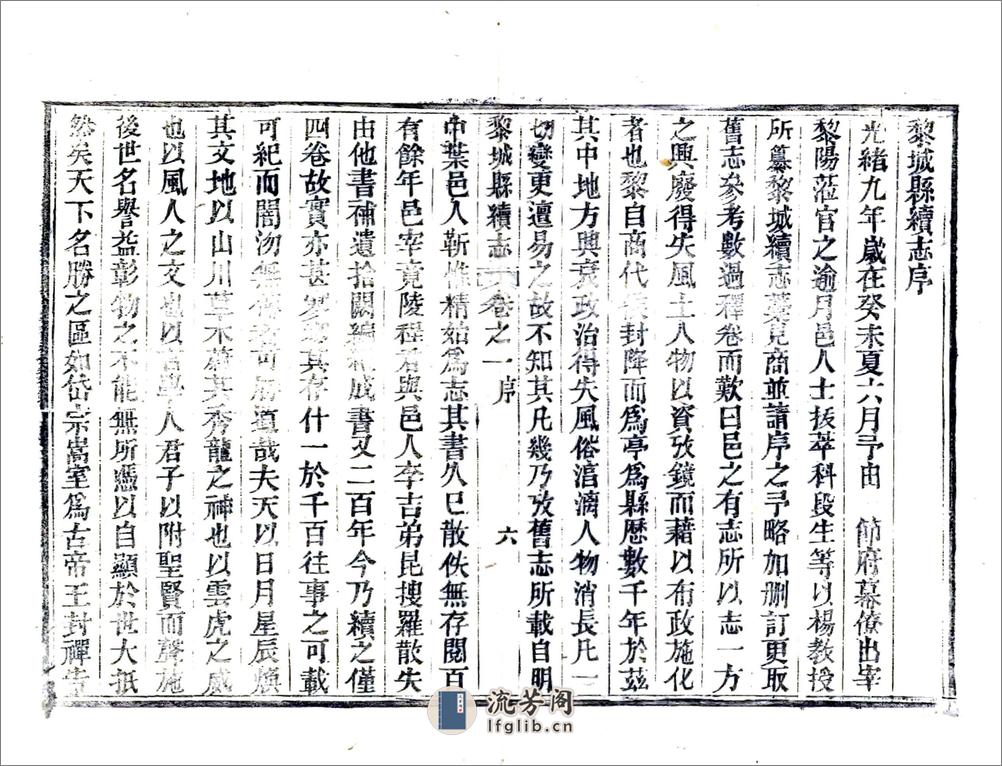 黎城縣續志序
光緒九年歲在癸未夏六月予由 節府幕僚出宰
黎陽蒞官之逾月邑人士拔萃科段生等以楊教授
所纂黎城續志藁見商並請序之予略加刪訂更取
舊志參考數過釋卷而歎曰邑之有志所以志一方
之興廢得失風土人物以資攷鏡而藉以布政施化
者也黎自商代侯封降而爲亭爲縣歷數千年於茲
其中地方興衰政治得失風俗淯漓人物消長凡一
切變更邅易之故不知其凡幾乃攷舊志所載自明
黎城縣續志 卷之一 序 六
中葉邑人靳惟精始爲志其書久已散佚無存閱百
有餘年邑宰竟陵程君與邑人李吉弟昆搜羅散失
由他書補遺拾闕編成書又二百年今乃續之僅
四卷故實亦甚寥其存什一於千百往事之可載
可紀而闇沕無可道哉夫天以日月星辰煥
其文地以山川草木蔚其秀龍之神也以雲虎之威
也以風人之文也以言學人君子以附聖賢而聲施
後世名譽益彰物之不能無所憑以自顯於世大抵
然矣天下名勝之區如岱宗嵩室爲古帝王封禪告
流芳阁
lfglib.cn